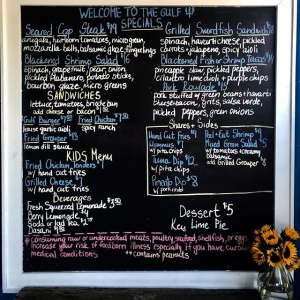 WELCOME TO THE GULF
SPECIALS
Seared Cap Steak
arugula, heirloom tomatoes, micro green,
mozzarella balls, balsamic glaze, fingerlings
Blackened Shrimp Salad $16
spinach, grapefruit, bean, onion
pickled habanero, potato sticks,
bourbon glaze, micro greens
SANDWICHES
lettuce, tomatoes, brioche bun
add cheese or bacon
Gulf Burger Fried Chicken
house garlic aioli spicy ranch
Fried Grouper
lemon dill sauce
KIDS Menu
Fried Chicken Tenders
w/ hand cut fries
Grilled Cheese
w/ hand cut fries
Beverages
Fresh Squeezed Lemonade
Berry Lemonade
Soda or Iced Tea
Dasani
Grilled Swordfish Sandwich
spinach, house chips, pickled
carrots, jalapeno, spicy aioli
Blackened Fish or Shrimp Tacos
pineapple slaw, pickled peppers
cilantro lime aioli & purple chips
Pork Roulade
pork stuffed w/ green beans, havarti
cheese, bacon, grits, salsa verde,
pickled peppers, green onions
Shares & Sides
Hand Cut Fries
Hummus
w/ pita chips
Tuna Dip $12
w/ pita chips
Pimento Dip
w/ pork rinds
Peel + Eat Shrimp
Mixed Green Salad
w/ tomatoes
balsamic
add Grilled Grouper
Dessert $5
Key Lime Pie
* consuming raw or undercooked meats, poultry, seafood, shellfish, or eggs
increase your risk of foodborn illness especially if you have certain
medical conditions ** contains peanuts